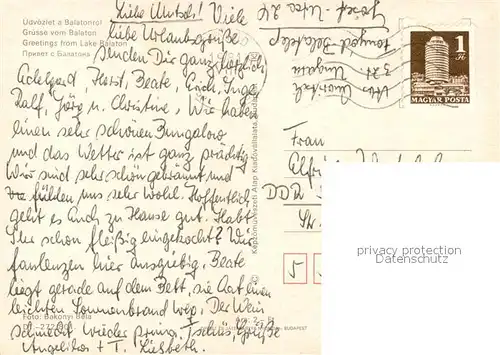 Üdvözlet a Balatonról
Grüsse vom Balaton
Greetings from Lake Balaton
Привет с Балатона
Liebe Viele
liebe Urlaubsgrüße
senden Dir ganz herzlich
Adelgard, Horst, Beate, Erich, Inge,
Ralf, Jörg u. Christine, Wir haben
einen sehr schönen Bungalow
und das Wetter ist ganz prächtig
Wir sind sehr schön gebräunt und
fühlen uns sehr wohl. Hoffentlich
geht es Euch zu Hause gut. Habt
Ihr schon fleißig eingekocht? Wir
faulenzen hier ausgiebig. Beate
liegt gerade auf dem Bett, sie hat einen
leichten Sonnenbrand weg. Der Wein
schmeckt wieder prima. Tschüß, Grüße
Angelika + T. Lisbeth
Foto: Bakonyi Béla
Képzőművészeti Alap Kiadóvállalata, Budapest
BUDAPEST
József-Utca 24
Ungarn
1 Ft
MAGYAR POSTA
Frau
DDR
5
privacy protection
Datenschutz